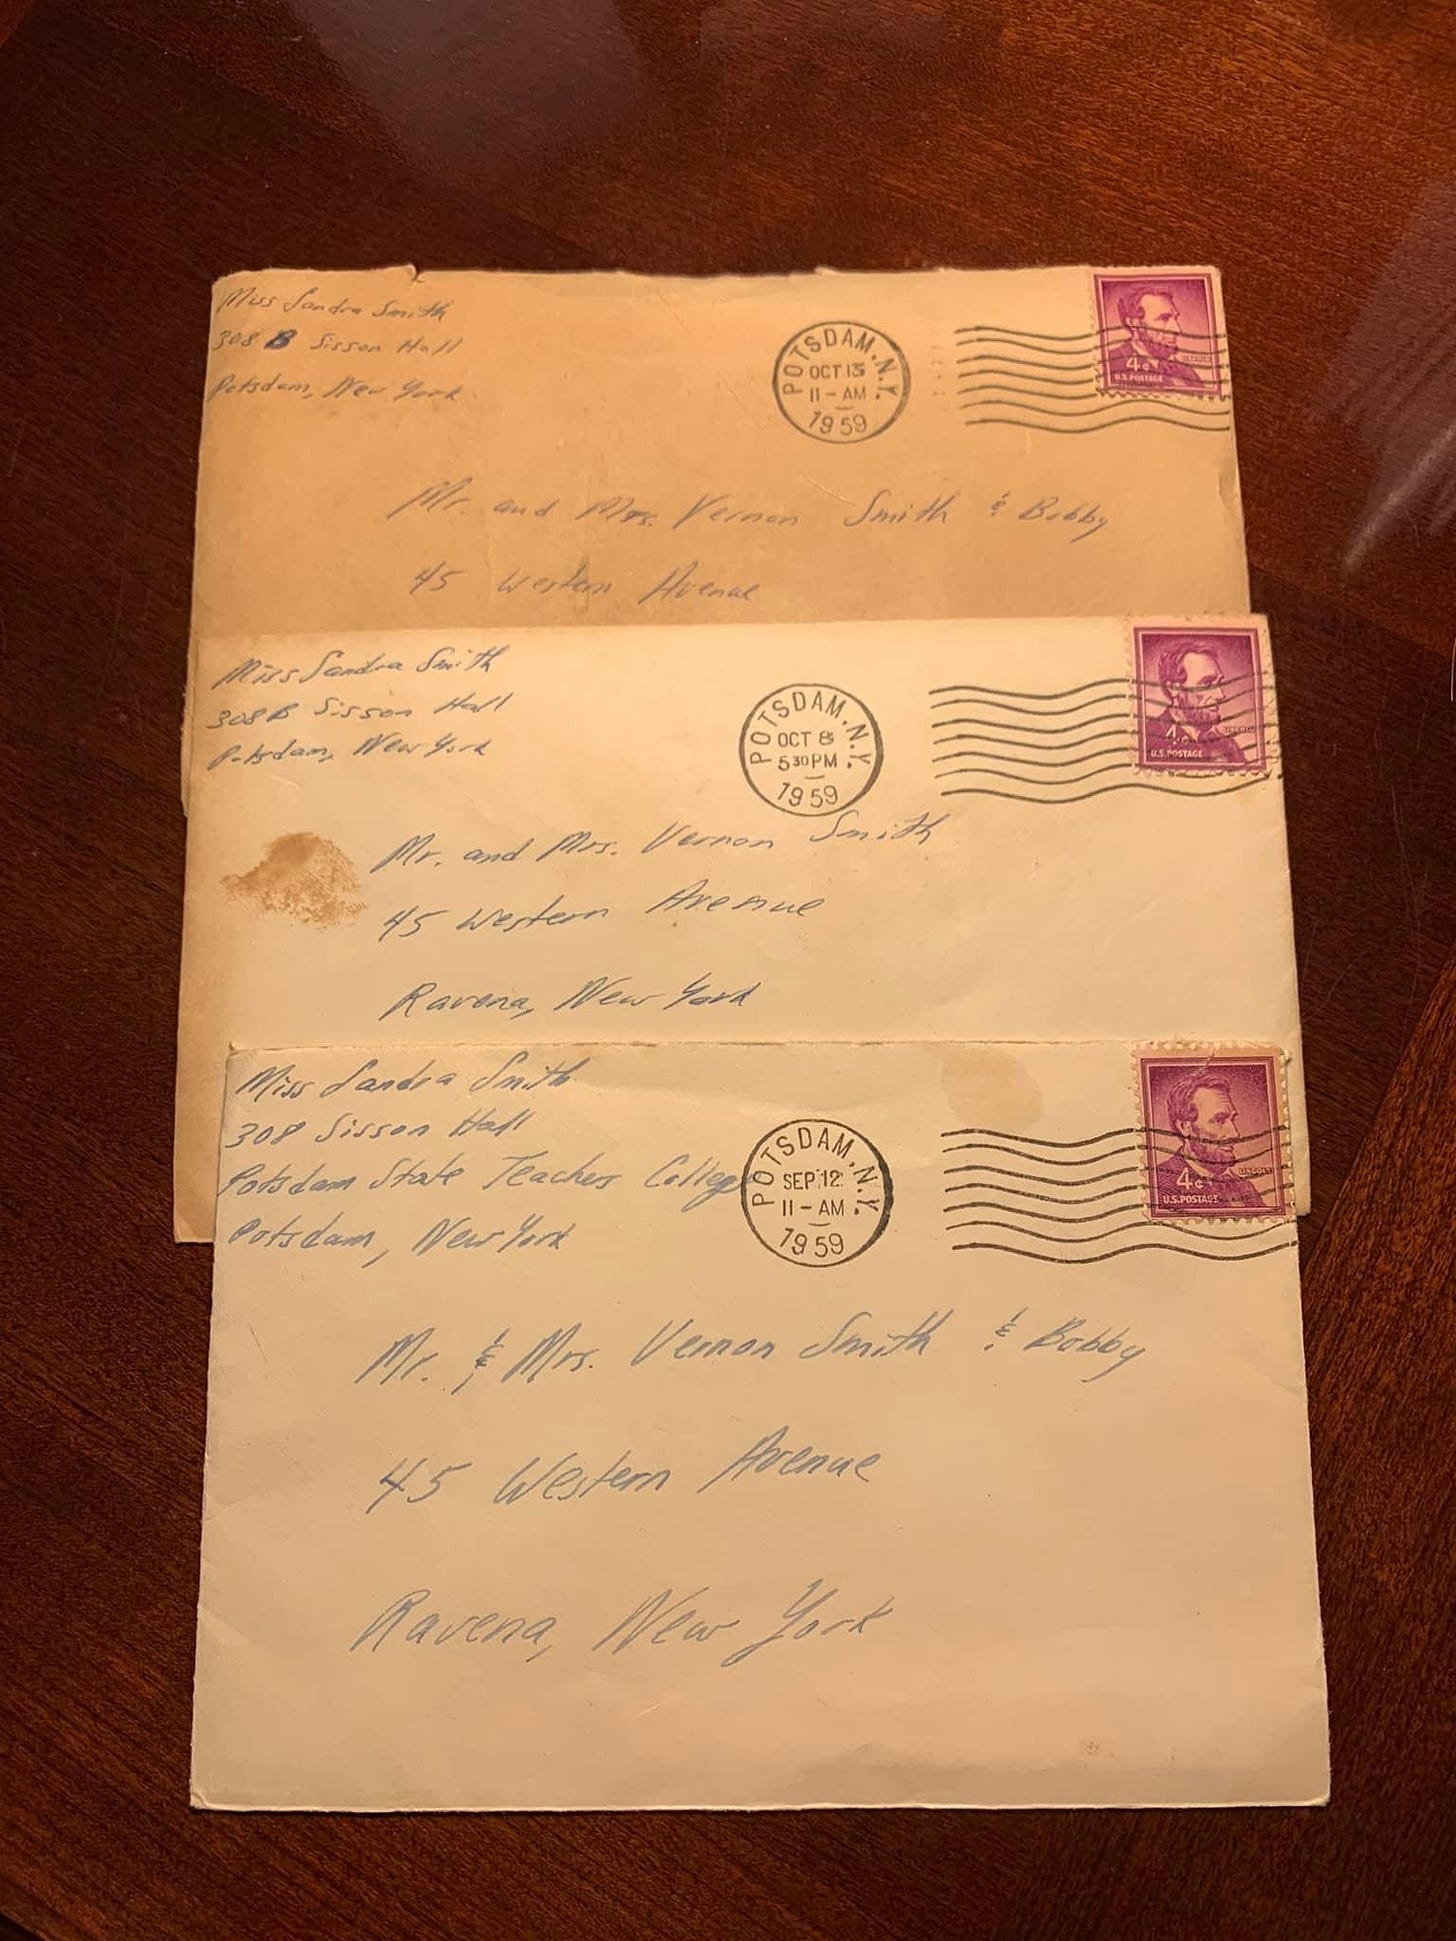 Miss Sandra Smith
308 B Sisson Hall
Potsdam, New York
POTSDAM, N.Y.
OCT 13
11 - AM
1959
4¢
LINCOLN
U.S. POSTAGE
Mr. and Mrs. Vernon Smith & Bobby
45 Western Avenue
Miss Sandra Smith
308 B Sisson Hall
Potsdam, New York
POTSDAM, N.Y.
OCT 8
5 30 PM
1959
4¢
LINCOLN
U.S. POSTAGE
Mr. and Mrs. Vernon Smith
45 Western Avenue
Ravena, New York
Miss Sandra Smith
308 Sisson Hall
Potsdam State Teachers College
Potsdam, New York
POTSDAM, N.Y.
SEP 12
11 - AM
1959
4¢
LINCOLN
U.S. POSTAGE
Mr. & Mrs. Vernon Smith & Bobby
45 Western Avenue
Ravena, New York